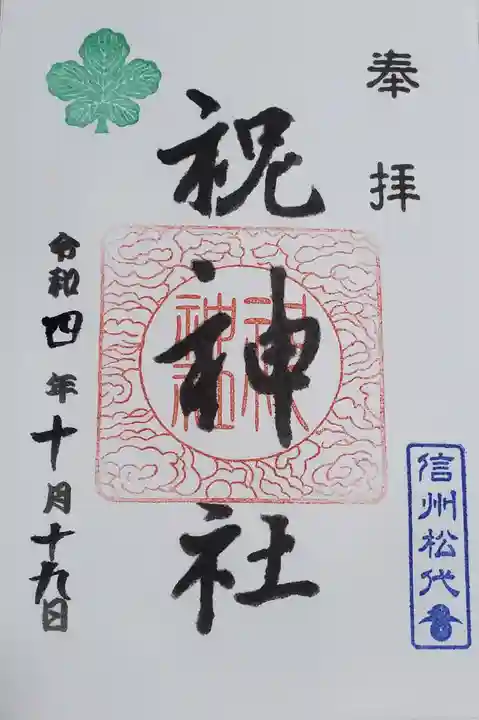 奉拝
祝神社
祝神社
信州松代
令和四年十月十九日